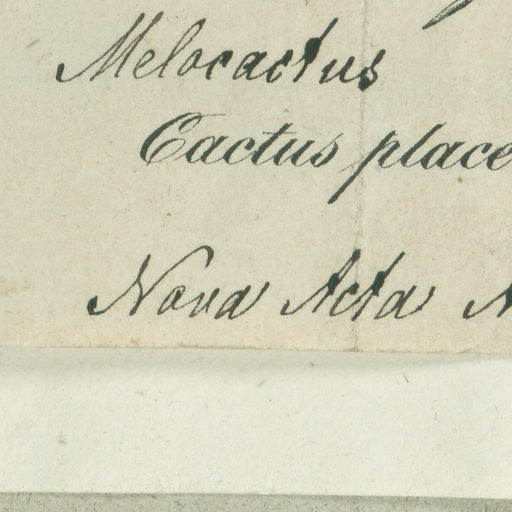 Melocactus
Cactus place
Nova Acta